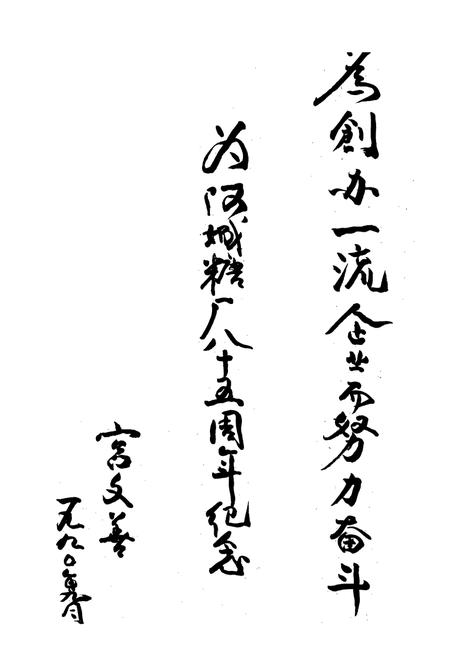 為創办一流企业而努力奋斗
为阿城糖厂八十五周年纪念
宫文善
一九九〇年月